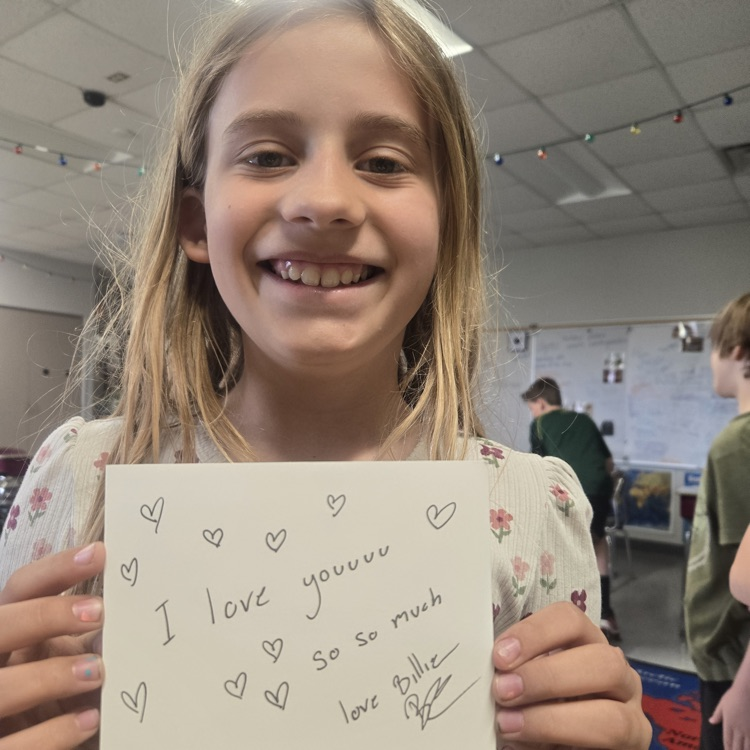 I love youuuu
so so much
love Billie